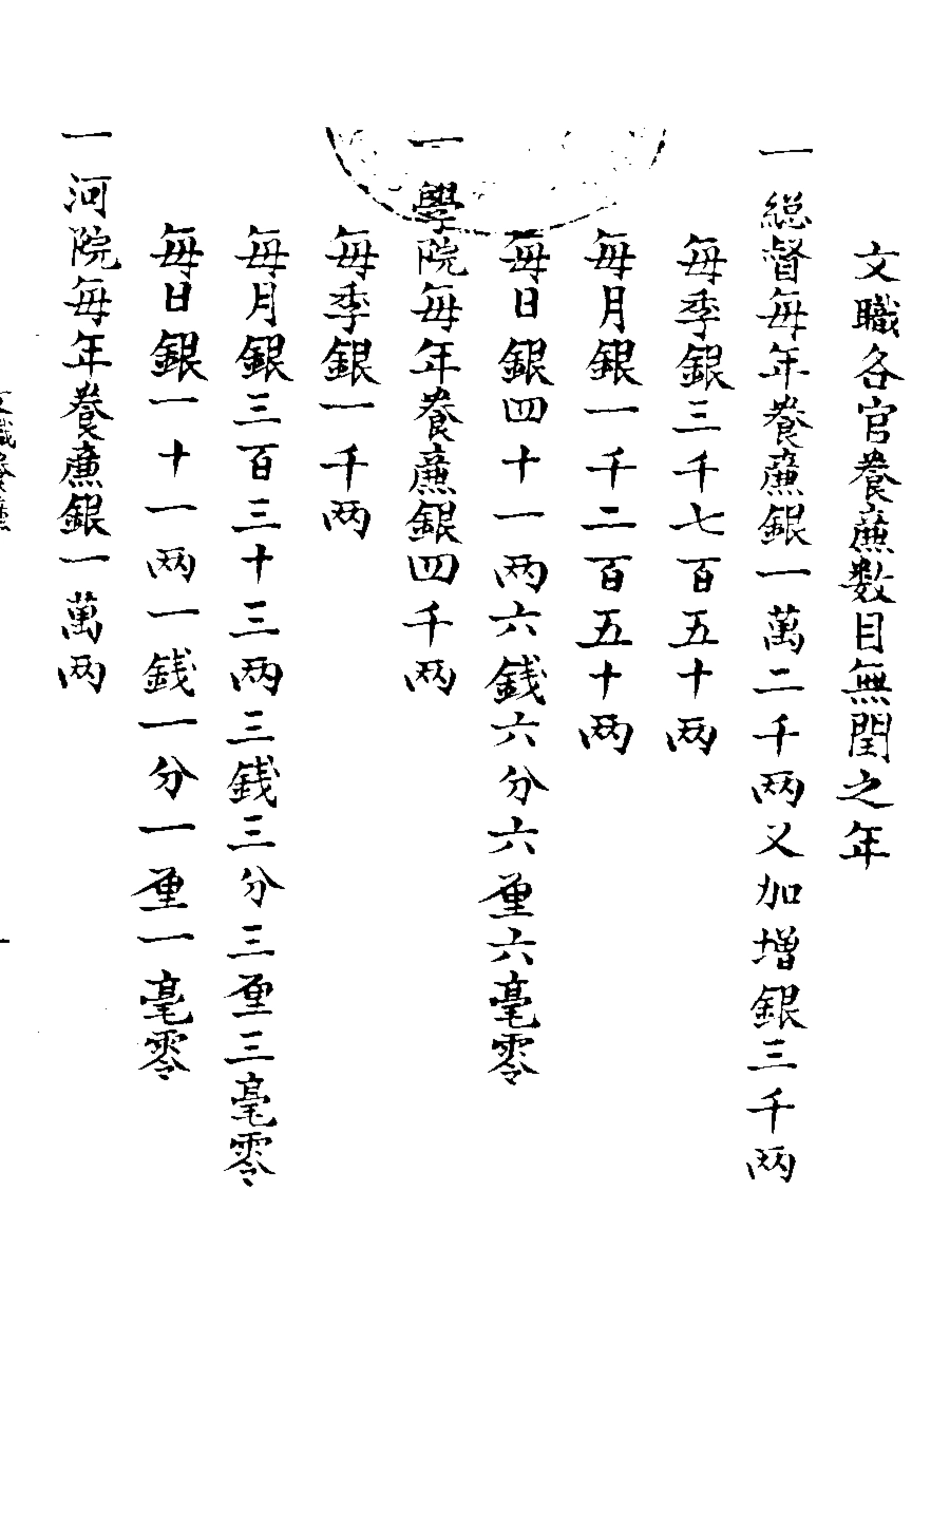 文職各官養廉數目無閏之年
一総督每年養廉銀一萬二千两又加增銀三千两
每季銀三千七百五十两
每月銀一千二百五十两
每日銀四十一两六銭六分六厘六毫零
一學院每年養廉銀四千两
每季銀一千两
每月銀三百三十三两三銭三分三厘三毫零
每日銀一十一两一銭一分一厘一毫零
一河院每年養廉銀一萬两